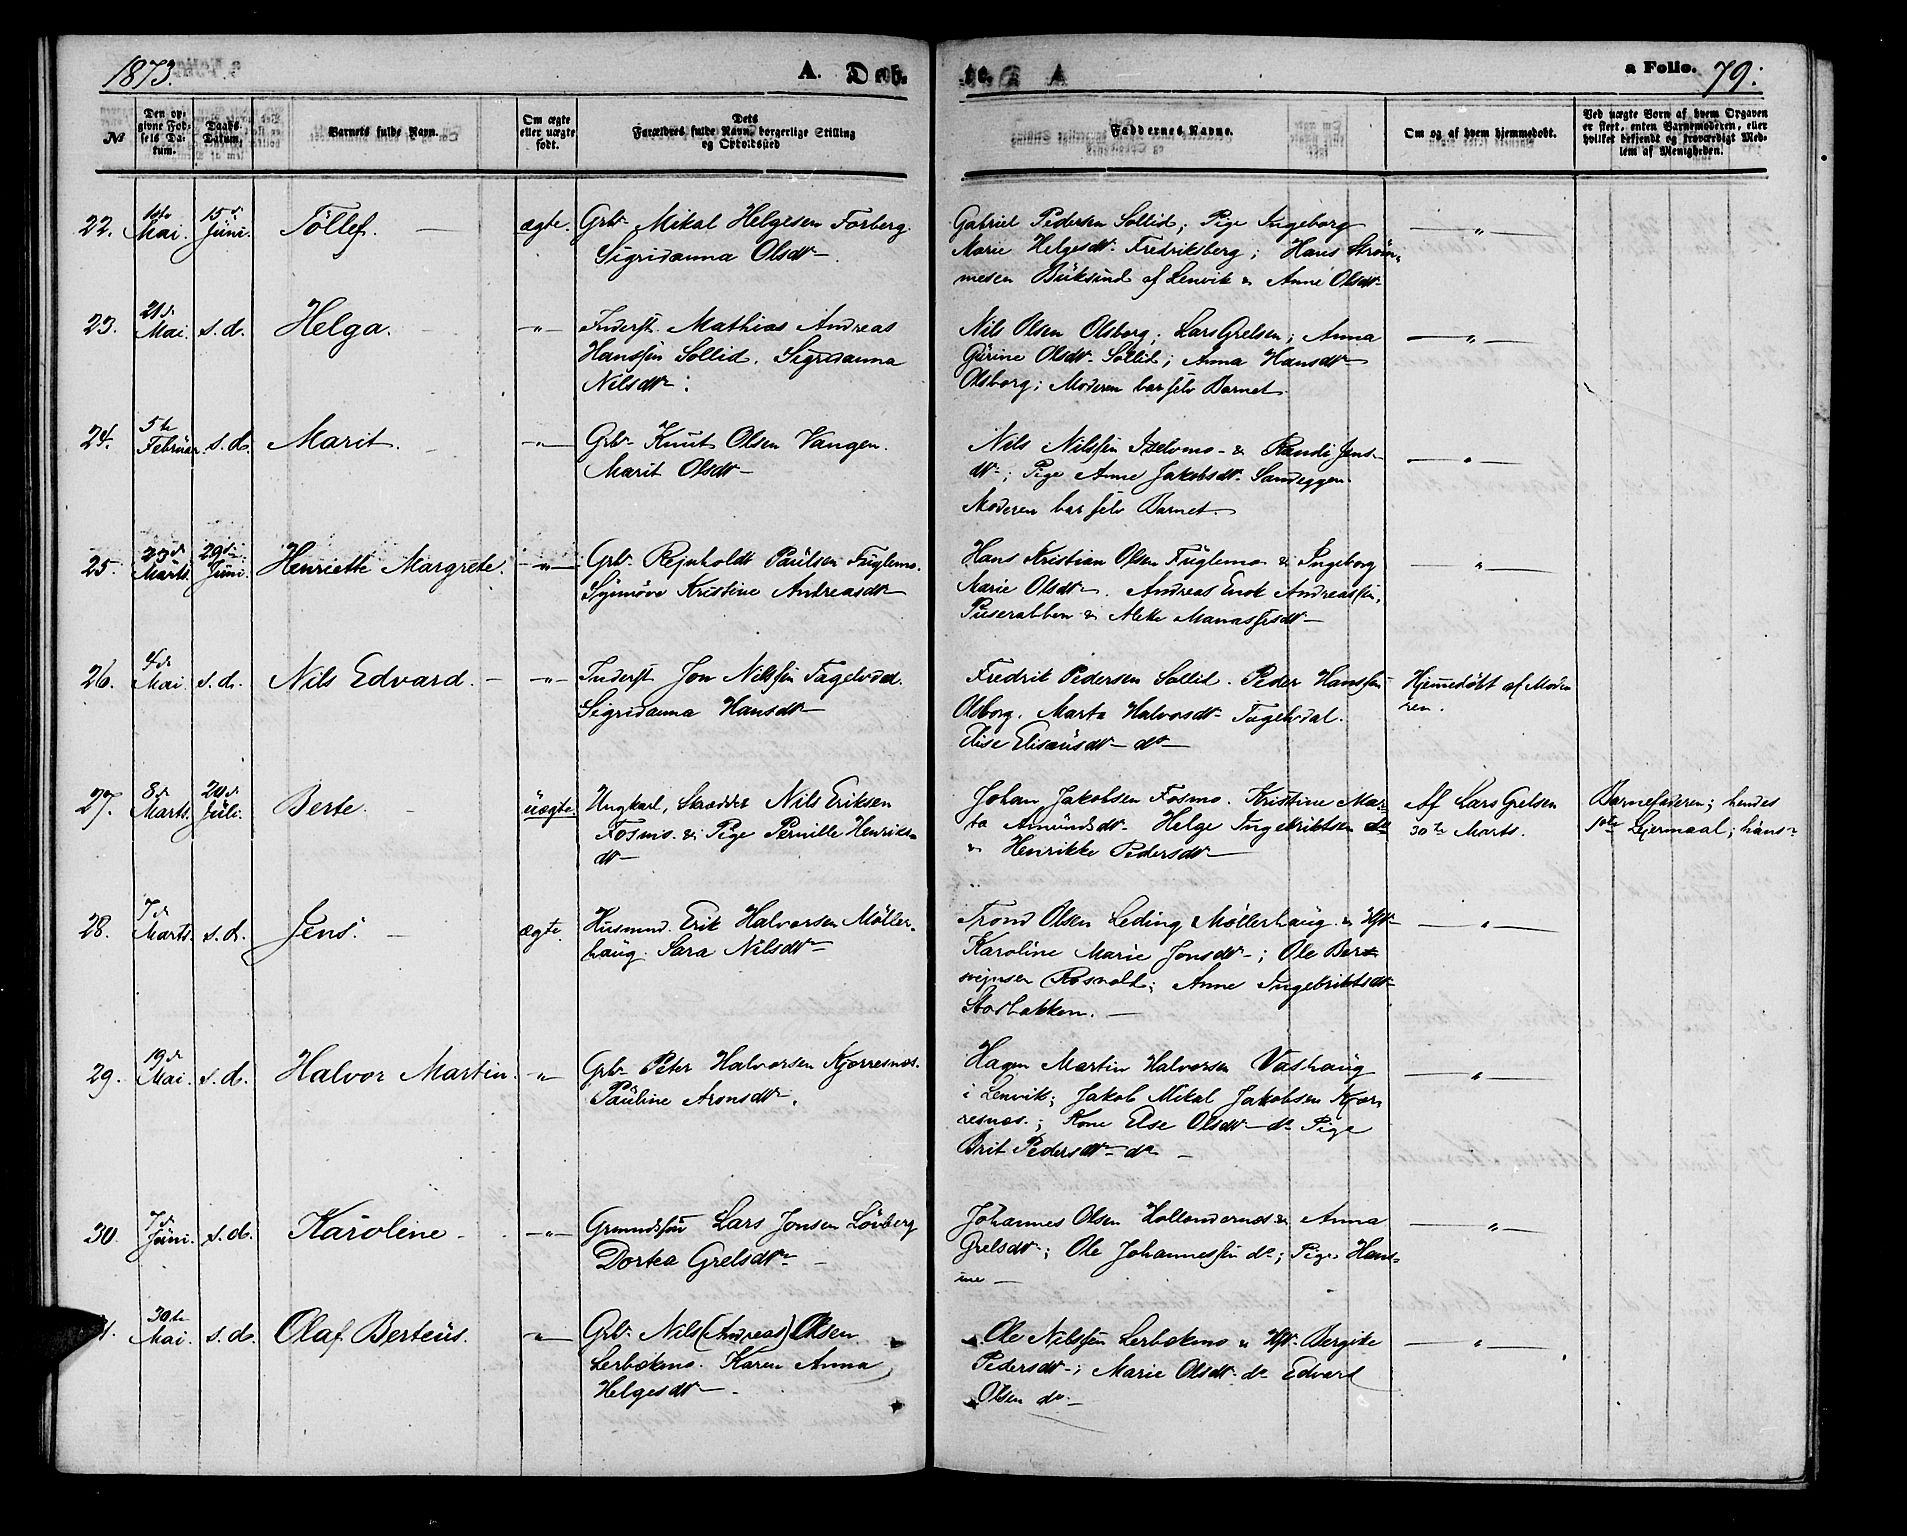 1873.
A. Døb.
a Folio. 79.
№
Den opgivne Fødsels Datum.
Daabs-Datum.
Barnets fulde Navn.
Om ægte eller uægte født.
Dets Forældres fulde Navn, borgerlige Stilling og Opholdssted
Faddernes Navne.
Om og af hvem hjemmedøbt.
Ved uægte Børn af hvem Opgaven er skeet, enten Barnemoderen, eller hvilket bekjendt og troværdigt Medlem af Menigheden.
22. Mai. 15d Juni. Töllef. — ægte. Grbr Mikal Helgesen Forberg.
Sigridanna Olsdtr
Gabriel Pedersen Sollid; Pige Ingeborg
Marie Helgesdtr Fredriksberg; Hans Strøm-
mesen Buksund af Lenvik & Anne Olsdtr
— " —
23. 21d Mai. s.d. Helga. — " — Inderst Mathias Andreas
Hanssen Sollid. Sigridanna
Nilsdtr.
Nils Olsen Olsborg; Lars Grelsen; Anna
Gurine Olsdtr Sollid; Anna Hansdtr
Olsborg; Moderen bar selv Barnet.
— " —
24. 5te Februar s.d. Marit. — " — Grbr Knut Olsen Vangen.
Marit Olsdtr
Nils Nilssen Iselvmo & Randi Jens-
dtr; Pige Anne Jakobsdtr Sandeggen
Moderen bar selv Barnet.
— " —
25. 23d Marts. 29d Juni. Henriette Margrete. — " — Grbr Rejnholdt Paulsen Fuglemo.
Synnöve Kristine Andreasdtr
Hans Kristian Olsen Fuglemo & Ingeborg
Marie Olsdtr. Andreas Enok Andreassen,
& Aleke Manassesdtr
— " —
26. 4d Mai. s.d. Nils Edvard. — " — Inderst Jon Nilssen Tagelvdal.
Sigridanna Hansdtr
Fredrik Pedersen Sollid. Peder Hanssen
Olsborg. Marta Halvorsdtr Tagelvdal.
Elise Elisæusdtr do
Hjemmedöbt af Mode
ren.
27. 8d Marts. 20d Juli. Berte. — uægte. Ungkarl, Skrædder Nils Eriksen
Fosmo. & Pige Pernille Henriks-
dtr
Johan Jakobsen Fosmo. Kristine Mar-
ta Amundsdtr Helge Ingebriktsen do
& Henrikke Pedersdtr
Af Lars Grelsen
30te Marts.
Barnefaderen; hendes
1ste Leiermaal; hans
28. 7d Marts. s.d. Jens. — ægte. Husmnd. Erik Halvorsen Møller-
haug. Sara Nilsdtr
Trond Olsen Leding Møllerhaug & Hst.
Karoline Marie Jonsdtr; Ole Ber-
svejnsen Rosvold; Anne Ingebriktsdtr
Storbakken. —
— " —
29. 19d Mai. s.d. Halvor Martin. — " — Grbr Peter Halvorsen Kjærresnæs.
Pauline Aronsdtr.
Hagen Martin Halvorsen Vashaug
i Lenvik; Jakob Mikal Jakobsen Kjær-
resnæs.; Kone Else Olsdtr do Pige
Brit Pedersdtr do
— " —
30. 7d Juni. s.d. Karoline — " — Grundsfur Lars Jonsen Lövberg
Dortea Grelsdtr
Johannes Olsen Hollendernæs & Anna
Grelsdtr; Ole Johannessen do; Pige Han-
ine
— " —
30te Mai. s.d. Olaf Berteus. — " — Grbr Nils (Andreas) Olsen
Lerbekmo. Karen Anna
Helgesdtr
Ole Nilssen Lerbekmo & Hst. Bergite
Pedersdtr; Marie Olsdtr do Edvard
Olsen do
— " —